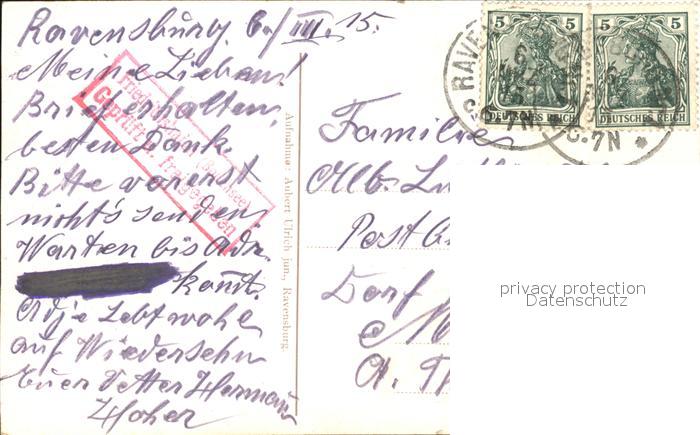 Ravensburg 6./III. 15.
Meine Lieben!
Brief erhalten,
besten Dank.
Bitte vorerst
nichts senden
Warten bis Adr.
komt.
Adje Lebt wohl
auf Wiedersehn
Euer Vetter Hermann
Hoher
Friedrichshafen (Bodensee)
Geprüft u. freigegeben
Aufnahme: Aubert Ulrich jun., Ravensburg.
5 5 5 5
DEUTSCHES REICH DEUTSCHES REICH
RAVE
6
6-7N.
6-7N
Familie
Alb.
Post
Dorf
A.
privacy protection
Datenschutz